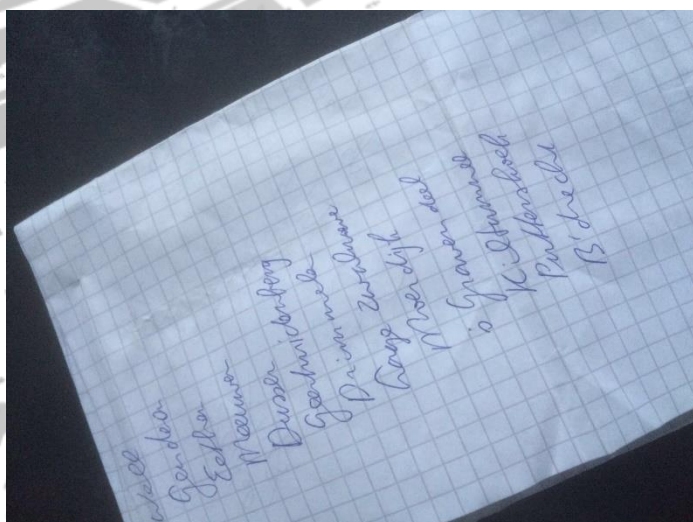 Well
Genderen
Eethen
Meeuwen
Dussen
Geertruidenberg
Drimmelen
Lage Zwaluwe
Moerdijk
's Gravendeel
Kiltunnel
Puttershoek
B'drecht